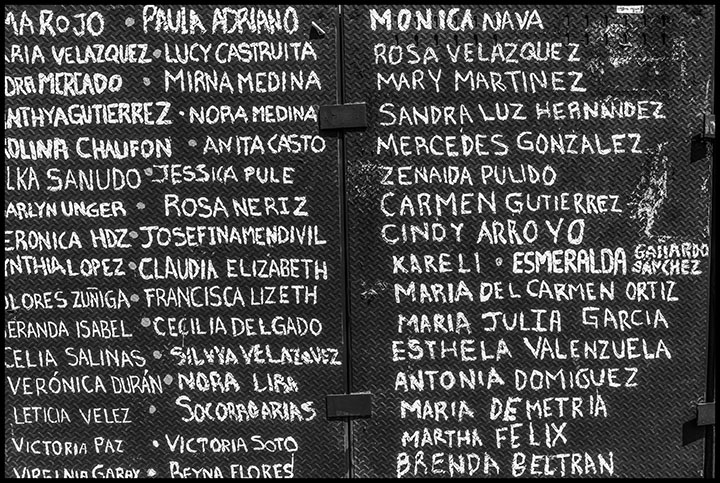 MA ROJO • PAULA ADRIANO
ARIA VELAZQUEZ • LUCY CASTRUITA
DRA MERCADO • MIRNA MEDINA
NTHYA GUTIERREZ • NORA MEDINA
ROLINA CHAUFON • ANITA CASTO
LKA SANUDO • JESSICA PULE
ARLYN UNGER • ROSA NERIZ
ERONICA HDZ • JOSEFINA MENDIVIL
YNTHIA LOPEZ • CLAUDIA ELIZABETH
OLORES ZUÑIGA • FRANCISCA LIZETH
ERANDA ISABEL • CECILIA DELGADO
CELIA SALINAS • SILVIA VELAZQUEZ
VERÓNICA DURÁN • NORA LIRA
LETICIA VELEZ • SOCORRO ARIAS
VICTORIA PAZ • VICTORIA SOTO
VIRGINIA GARAY • REYNA FLORES
MONICA NAVA
ROSA VELAZQUEZ
MARY MARTINEZ
SANDRA LUZ HERNÁNDEZ
MERCEDES GONZALEZ
ZENAIDA PULIDO
CARMEN GUTIERREZ
CINDY ARROYO
KARELI • ESMERALDA GALLARDO SANCHEZ
MARIA DEL CARMEN ORTIZ
MARIA JULIA GARCIA
ESTHELA VALENZUELA
ANTONIA DOMIGUEZ
MARIA DEMETRIA
MARTHA FELIX
BRENDA BELTRAN